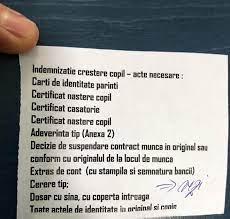 Indemnizatie crestere copil – acte necesare :
Carti de identitate parinti
Certificat nastere copil
Certificat casatorie
Certificat nastere copil
Adeverinta tip (Anexa 2)
Decizie de suspendare contract munca in original sau
conform cu originalul de la locul de munca
Extras de cont (cu stampila si semnatura bancii)
Cerere tip;
Dosar cu sina, cu coperta intreaga
Toate actele de identitate in original si copie